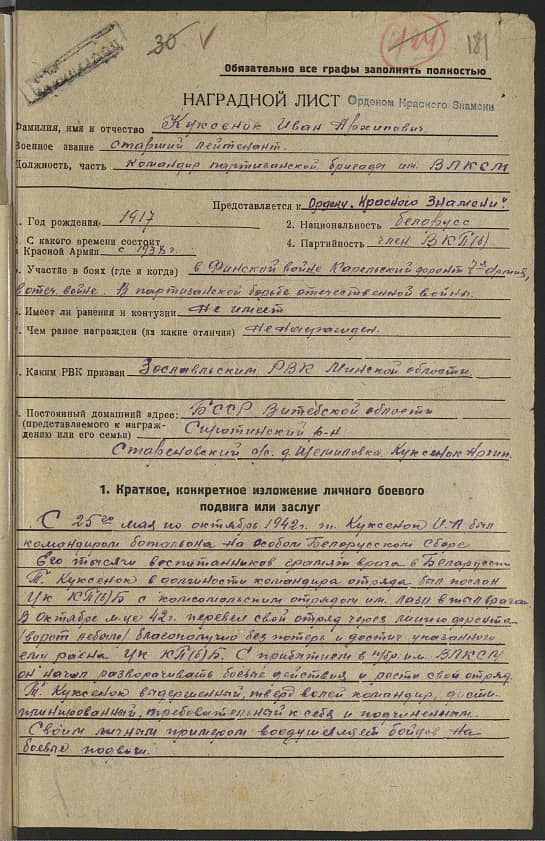 30 V
124 181
Обязательно все графы заполнять полностью
НАГРАДНОЙ ЛИСТ Орденом Красного Знамени
Фамилия, имя и отчество Куксенок Иван Архипович.
Военное звание старший лейтенант.
Должность, часть командир партизанской бригады им. ВЛКСМ
Представляется к Ордену „Красного Знамени"
1. Год рождения 1917 2. Национальность белорусс
3. С какого времени состоит
в Красной Армии с 1938 г. 4. Партийность член ВКП(б)
5. Участие в боях (где и когда) в Финской войне Карельский фронт 7я Армия,
в отеч. войне. В партизанской борьбе отечественной войны.
6. Имеет ли ранения и контузии Не имеет
7. Чем ранее награжден (за какие отличия) Не награжден.
8. Каким РВК призван Заславльским РВК Минской области.
9. Постоянный домашний адрес: БССР Витебской области
(представляемого к награж-
дению или его семьи) Сиротинский р-н
с/с. д. Шемиловка. Куксенок Архип.
1. Краткое, конкретное изложение личного боевого
подвига или заслуг
С 25го мая по октябрь 1942 г. т. Куксенок И.А был
командиром батальона на особом Белорусском Сборе
Его тысячи воспитанников громят врага в Белоруссии
Т. Куксенок в должности командира отряда был послан
ЦК КП(б)Б с комсомольским отрядом им. Лазо в тыл врага
В октябре м-це 42 г. перевел свой отряд через линию фронта
(ворот небыло) благополучно без потерь и достиг указанного
ему раена ЦК КП(б)Б. С прибытием в п/бр. им. ВЛКСМ
он начал разворачивать боевые действия и расти свой отряд.
Т. Куксенок выдержанный, тверд волей командир, дисци-
плинированный, требовательный к себе и подчиненным.
Своим личным примером воодушевляет бойцов на
боевые подвиги.